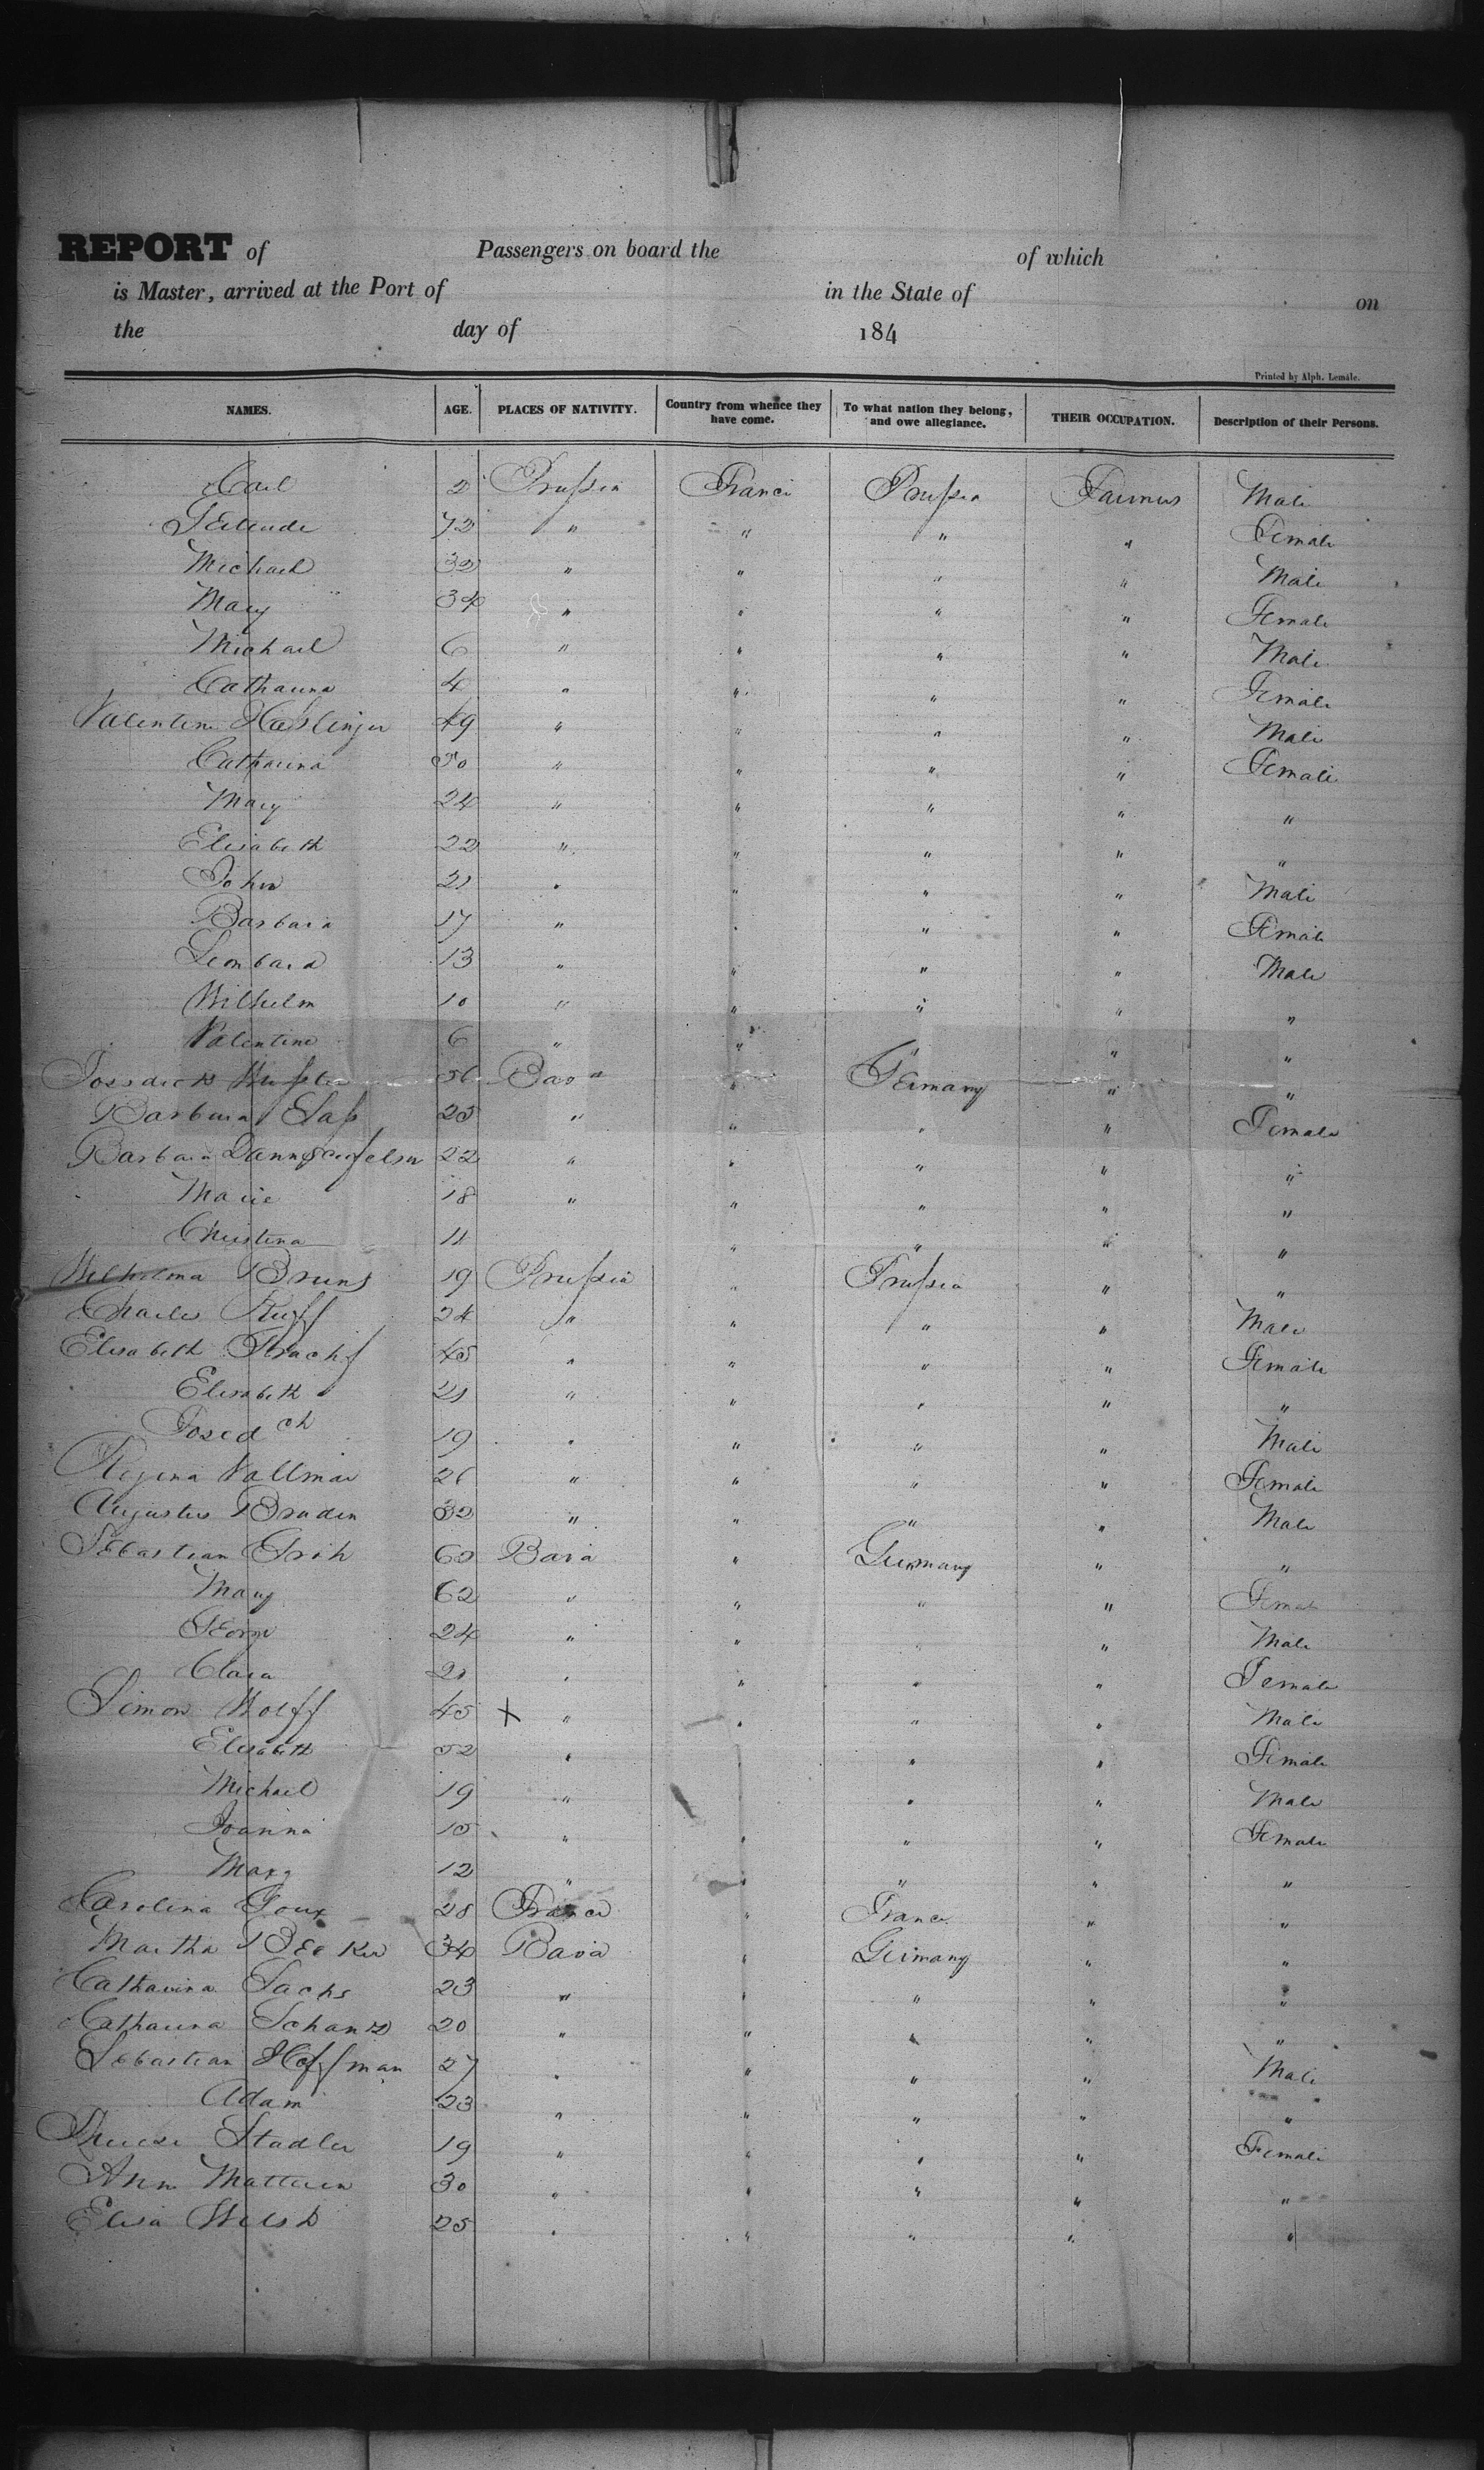 REPORT of Passengers on board the of which
is Master, arrived at the Port of in the State of on
the day of 184
Printed by Alph. Lemâle.
NAMES. AGE. PLACES OF NATIVITY. Country from whence they have come. To what nation they belong, and owe allegiance. THEIR OCCUPATION. Description of their Persons.
Carl 2 Prussia France Prussia Farmers Male
Gertrude 72 " " " " Female
Michael 32 " " " " Male
Mary 34 " " " " Female
Michael 6 " " " " Male
Catharina 4 " " " " Female
Valentine Haslinger 49 " " " " Male
Catharina 50 " " " " Female
Mary 24 " " " " "
Elisabeth 22 " " " " "
John 21 " " " " Male
Barbara 17 " " " " Female
Leonbard 13 " " " " Male
Wilhelm 10 " " " " "
Valentine 6 " " " " "
56 Bava " Germany " "
Barbara 25 " " " " Female
Barbara 22 " " " " "
Marie 18 " " " " "
Christina 11 " " " "
Wilhelmina Bruns 19 Prussia " Prussia " "
Charles Ruff 24 " " " " Male
Elisabeth 45 " " " " Female
Elisabeth 21 " " " " "
19 " " " " Male
Regina Vallmar 26 " " " " Female
Augustus Bruden 32 " " " " Male
Sebastian 60 Bava " Germany " "
Mary 62 " " " " Female
George 24 " " " " Male
Clara 21 " " " " Female
Simon Wolff 45 X " " " " Male
Elisabeth 52 " " " " Female
Michael 19 " " " " Male
Joanna 15 " " " " Female
Mary 12 " " " " "
Carolina 28 France " France " "
Martha Becker 34 Bava " Germany " "
Catharina Sachs 23 " " " " "
Catharina Schantz 20 " " " " "
Sebastian Hoffman 27 " " " " Male
Adam 23 " " " " "
Therese Stadler 19 " " " " Female
Ann 30 " " " " "
Elisa Welsh 25 " " " " "